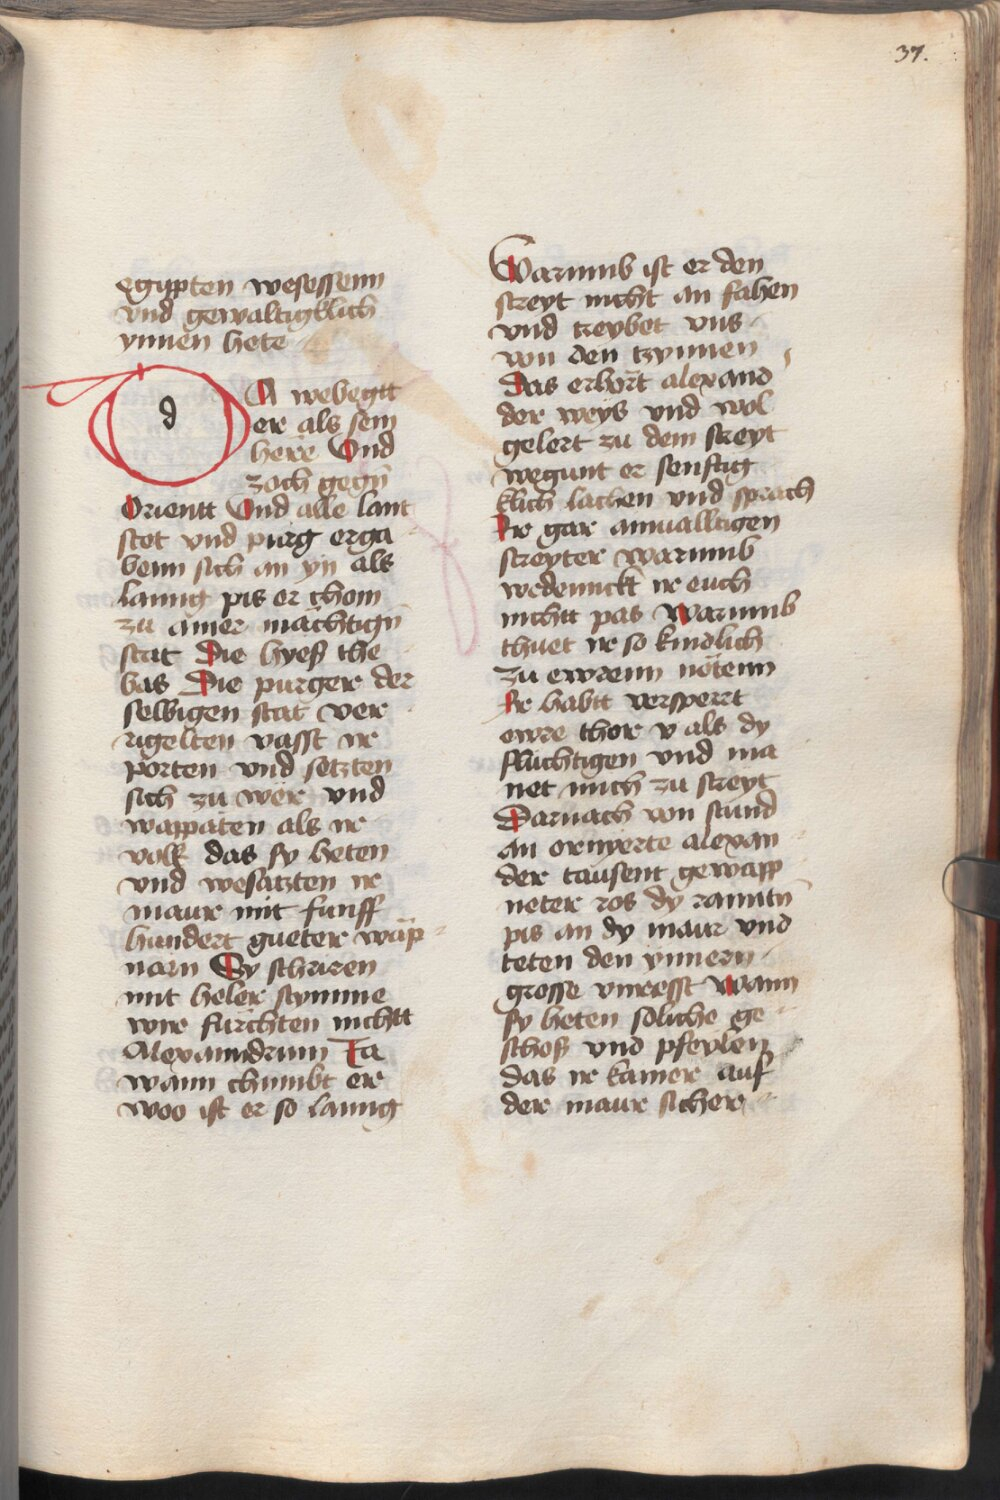 37.
egippten wesessenn
vnd gewaltigklich
ynnen hete
d A webegtt
er als sein
here Vnd
zoch gegn̄
Orientt Vnd alle lant
stet vnd purg erga
benn sich an yn als
lanng pis er chom
zu ainer mächtign̄
stat Die hyeß the
bas Die purger der
selbigen stat ver
rigelten vasst ir
porten vnd setzten
sich zu wer vnd
wappaten als ir
volk das sy heten
vnd wesatzten ir
maur mit funff
hundert gueter wap̄
narn Sy schriren
mit heler stymme
wir furchten nichtt
Alexanndrum Ja
wann chumbt er
woo ist er so lanng
Warumb ist er den
streyt nicht an fahen
vnd treybet vns
von den tzynnen
Das erhort alexand
der weys vnd wol
gelert zu dem streyt
wegunt er senftig
klich lachen vnd sprach
Ir gar ainualltigen
streyter warumb
wedennckt ir euch
nichtt pas Warumb
thuet ir so kindlich
zu ewrenn nötenn
Ir habtt versperrt
ewre thor v als dy
fluchtigen vnd ma
net mich zu streyt
Darnach von stund
an ornyerte alexan
der tausent gewapp
neter ros dy ranntn̄
pis an dy maur vnd
teten den ynnern
grosse vnresst Wann
sy heten soliche ge
schoß vnd pfeylen
das ir kainer auf
der maur sicher